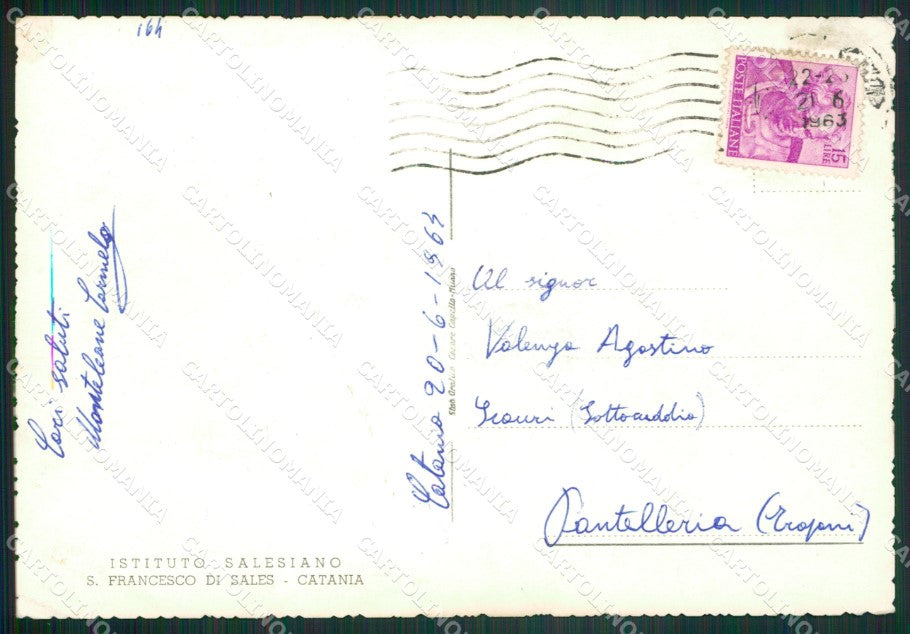 164
POSTE ITALIANE
15 LIRE
21 6
1963
Cari saluti
Monteleone Carmelo
Catania 20-6-1963
Al signor
Valenza Agostino
Scauri (Sottocuddia)
Pantelleria (Trapani)
ISTITUTO SALESIANO
S. FRANCESCO DI SALES - CATANIA
CARTOLINOMANIA